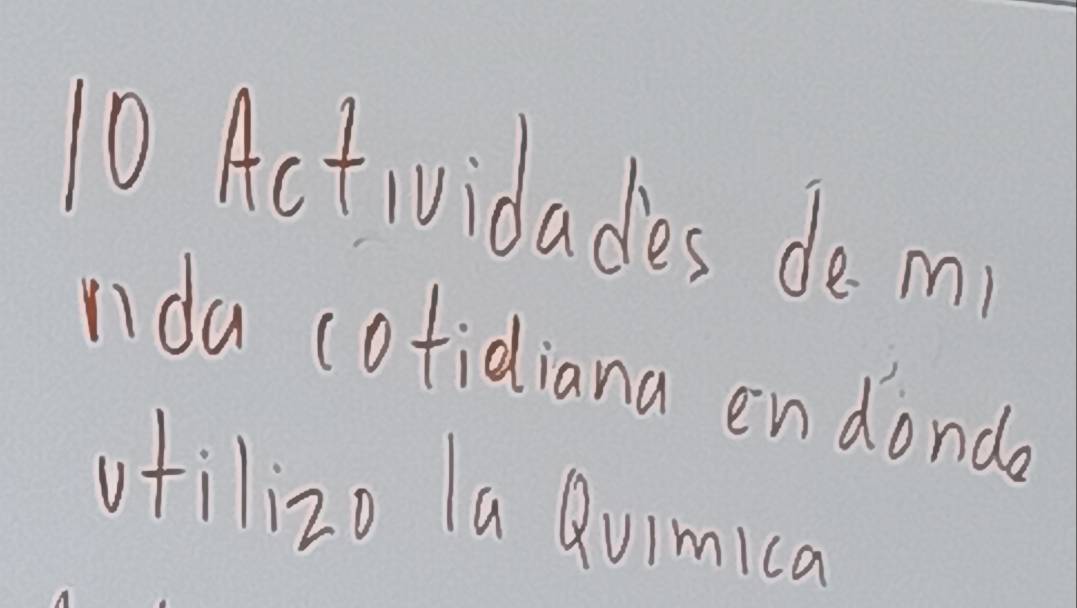 10 Actividades de mi
vida cotidiana en dónde
utilizo la Química